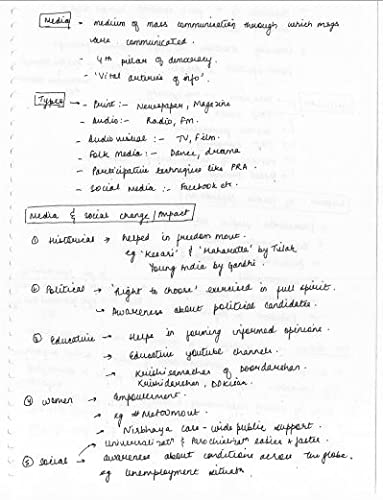 Media - medium of mass communication through which msgs
are communicated.
- 4th pillar of democracy
- 'Vital arteries of info'.
Types - Print :- Newspaper, Magazine
- Audio :- Radio, FM.
- Audio visual :- TV, Film.
- Folk media :- Dance, drama
- Participative techniques like PRA.
- Social Media :- Facebook etc.
Media & social change / Impact
① Historical → helped in freedom movt.
eg 'Kesari' & 'Maharatta' by Tilak
Young India by Gandhi.
② Political → 'Right to choose' exercised in full spirit.
→ Awareness about political candidates.
③ Educative → Helps in forming informed opinions.
→ Educative youtube channels.
→ Krishi samachar of Doordarshan
Krishidarshan, DD Kisan.
④ Women → Empowerment.
→ eg # Metoo movt
→ Nirbhaya case - wide public support.
→ Universalizatn & Parochializatn easier & faster
⑤ Social → awareness about conditions across the globe.
eg Unemployment situatn